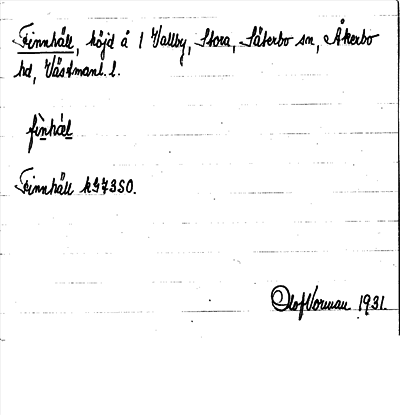 Finnhäll, höjd å 1 Vallby, Stora, Säterbo sn, Åkerbo
hd, Västmanl. l.
finhæl
Finnhäll k97350.
Olof Vorman 1931.